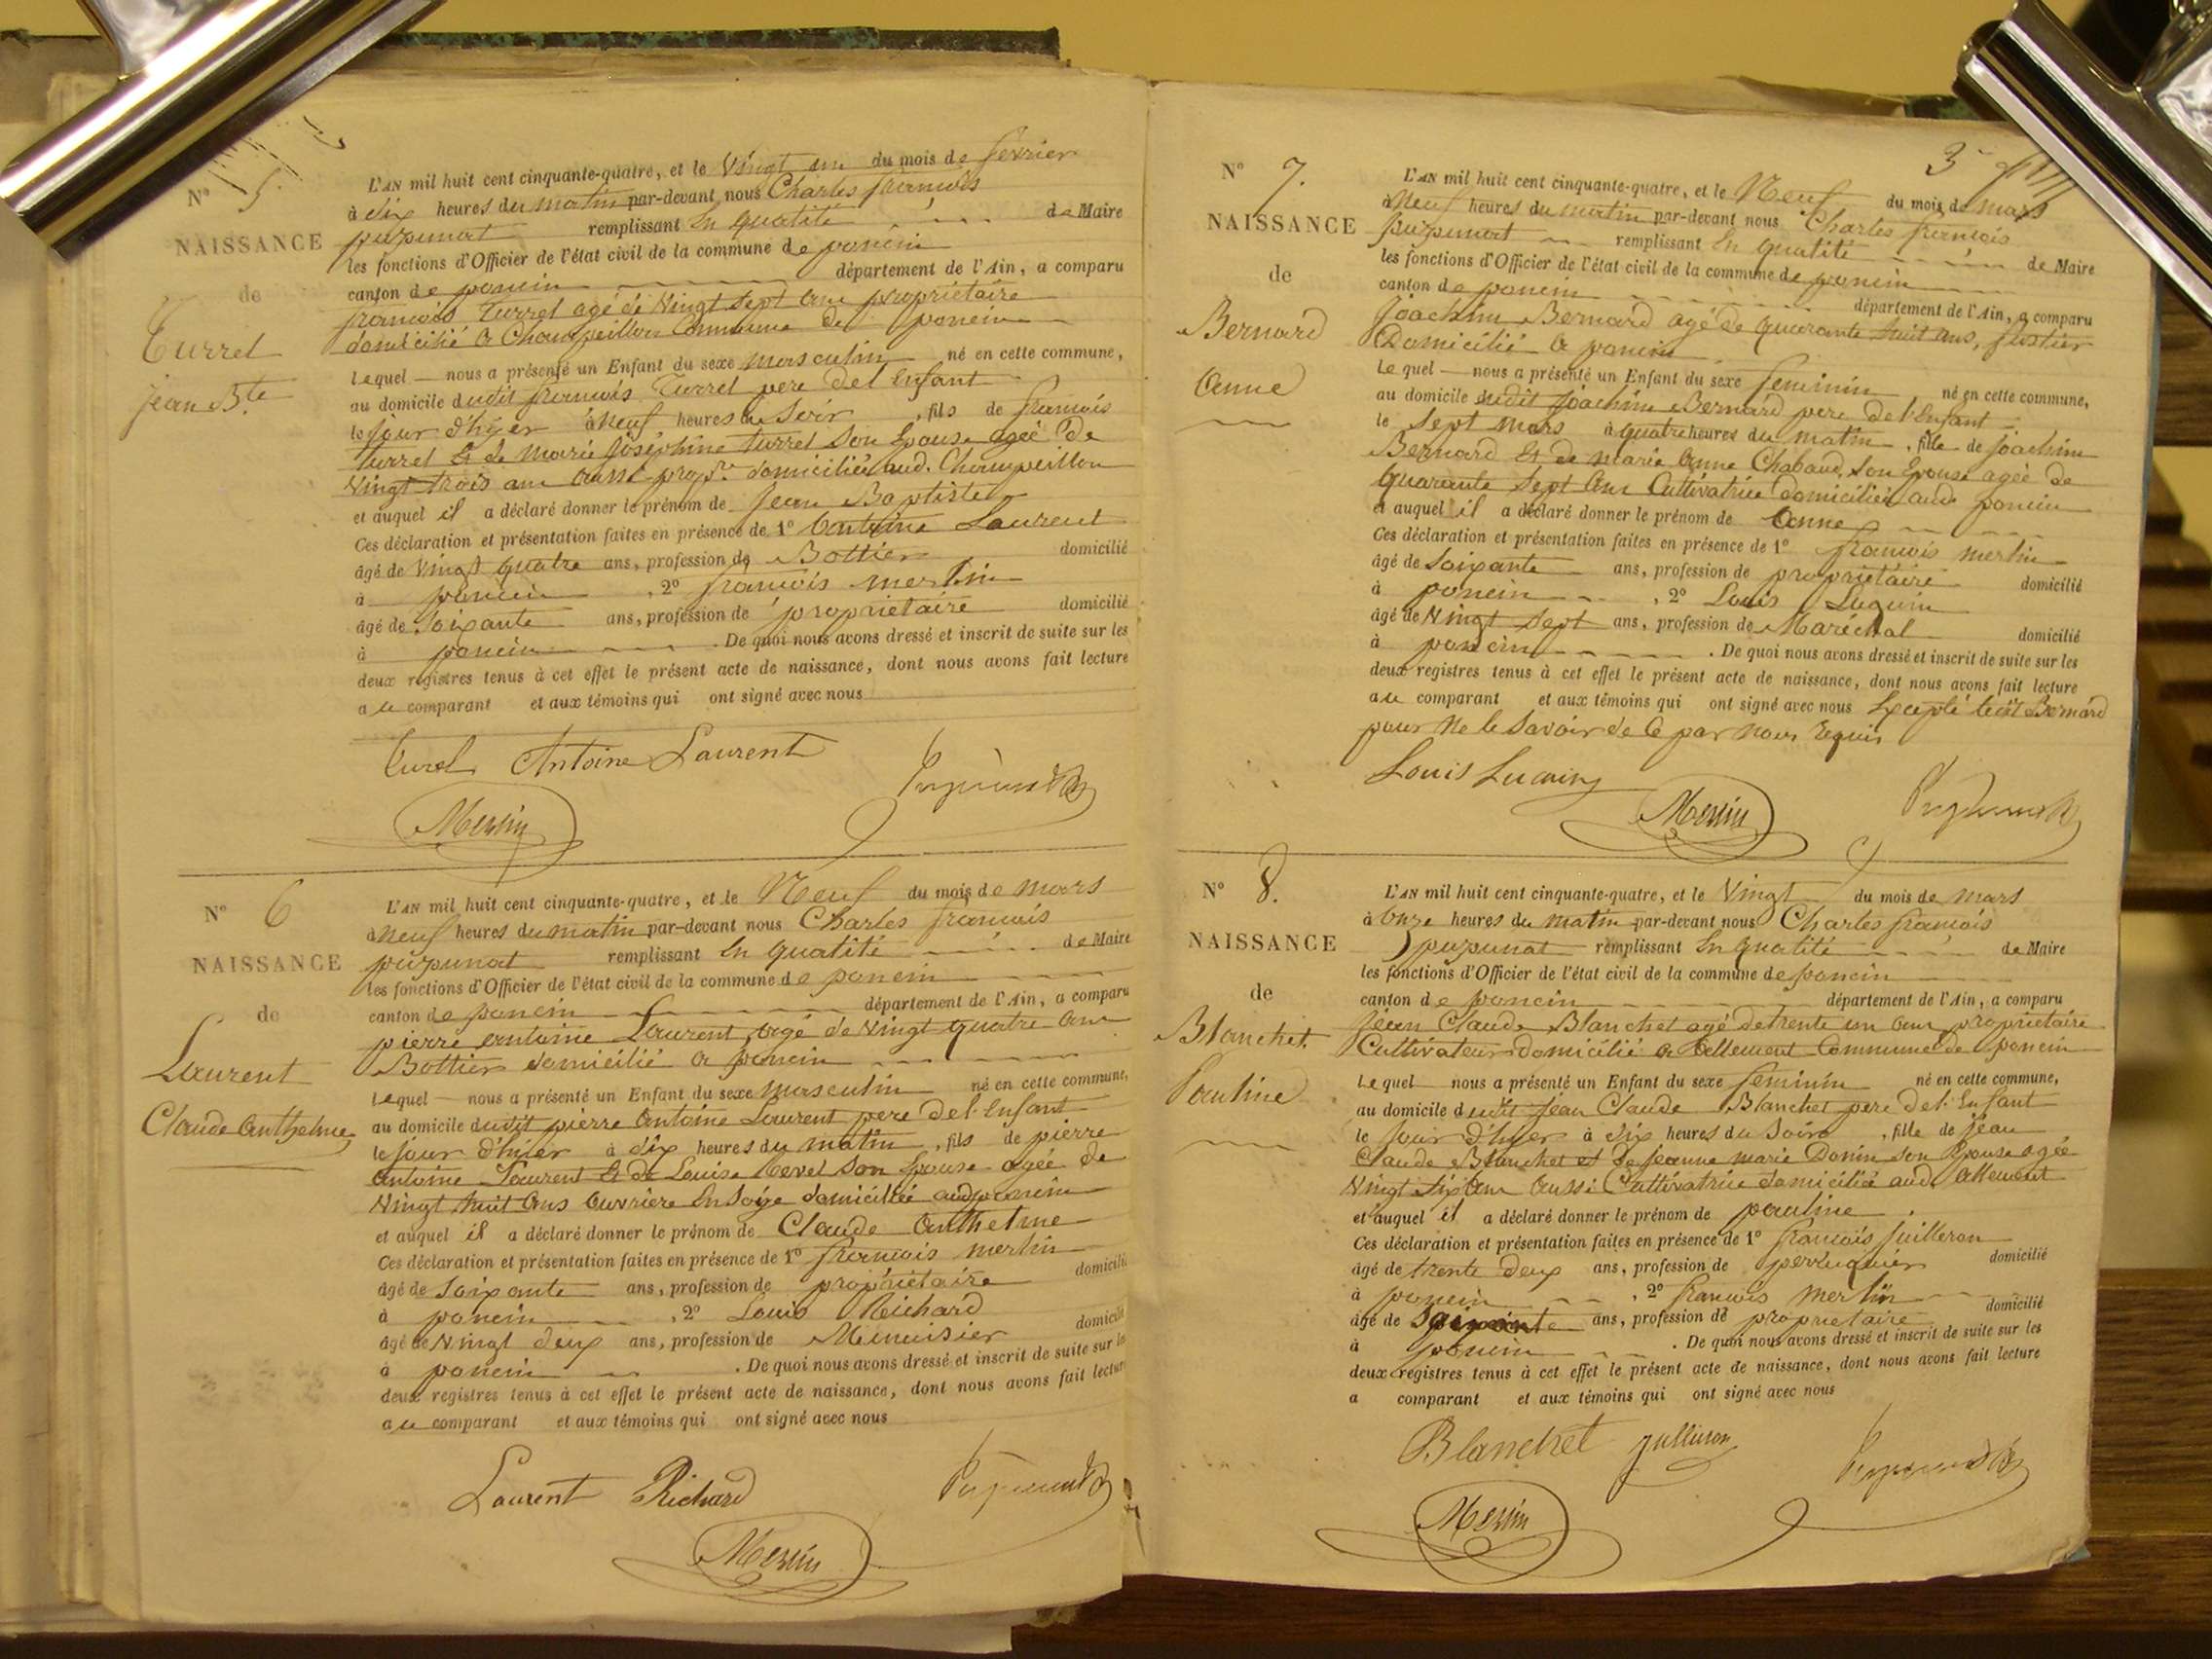 N° 5
NAISSANCE
de
Turrel
jean Bte
L'AN mil huit cent cinquante-quatre, et le Vingt un du mois de fevrier
à dix heures du matin par-devant nous Charles françois
puzunat remplissant En qualité de Maire
les fonctions d'Officier de l'état civil de la commune de poncin
canton de poncin département de l'Ain, a comparu
françois Turrel agé de Vingt Sept ans propriétaire
domicilié a Champeillon Commune de poncin
lequel nous a présenté un Enfant du sexe masculin né en cette commune,
au domicile dudit françois Turrel pere de l'Enfant
le jour d'hier à neuf heures du Soir, fils de françois
turrel Et de marie joséphine turrel Son Epouse agée de
Vingt trois ans aussi propre domiciliée aud. Champeillon
et auquel il a déclaré donner le prénom de Jean Baptiste
Ces déclaration et présentation faites en présence de 1° Antoine Laurent
âgé de Vingt quatre ans, profession de Bottier domicilié
à poncin, 2° françois merlin
âgé de Soixante ans, profession de propriétaire domicilié
à poncin. De quoi nous avons dressé et inscrit de suite sur les
deux registres tenus à cet effet le présent acte de naissance, dont nous avons fait lecture
au comparant et aux témoins qui ont signé avec nous
Turel Antoine Laurent
Merlin
N° 6
NAISSANCE
de
Laurent
Claude Anthelme
L'AN mil huit cent cinquante-quatre, et le Neuf du mois de mars
à neuf heures du matin par-devant nous Charles françois
puzunat remplissant En qualité de Maire
les fonctions d'Officier de l'état civil de la commune de poncin
canton de poncin département de l'Ain, a comparu
pierre antoine Laurent, agé de Vingt quatre ans
Bottier domicilié a poncin
lequel nous a présenté un Enfant du sexe masculin né en cette commune,
au domicile dudit pierre Antoine Laurent pere de l'Enfant
le jour d'hier à dix heures du matin, fils de pierre
Antoine Laurent Et de Louise Son Epouse agée de
Vingt huit ans Ouvrière En Soie domiciliée aud poncin
et auquel il a déclaré donner le prénom de Claude Anthelme
Ces déclaration et présentation faites en présence de 1° françois merlin
âgé de Soixante ans, profession de propriétaire domicilié
à poncin, 2° Louis Richard
âgé de Vingt deux ans, profession de Menuisier domicilié
à poncin. De quoi nous avons dressé et inscrit de suite sur les
deux registres tenus à cet effet le présent acte de naissance, dont nous avons fait lecture
au comparant et aux témoins qui ont signé avec nous
Laurent Richard
Merlin
3
N° 7.
NAISSANCE
de
Bernard
Anne
L'AN mil huit cent cinquante-quatre, et le Neuf du mois de mars
à Neuf heures du matin par-devant nous Charles françois
puzunat remplissant En qualité de Maire
les fonctions d'Officier de l'état civil de la commune de poncin
canton de poncin département de l'Ain, a comparu
Joachim Bernard agé de quarante huit ans,
Domicilié a poncin
lequel nous a présenté un Enfant du sexe feminin né en cette commune,
au domicile dudit joachim Bernard pere de l'Enfant
le Sept mars à quatre heures du matin, fille de joachim
Bernard Et de marie Anne Chabaud, Son Epouse agée de
quarante Sept ans Cultivatrice domiciliée aud poncin
et auquel il a déclaré donner le prénom de Anne
Ces déclaration et présentation faites en présence de 1° françois merlin
âgé de Soixante ans, profession de propriétaire domicilié
à poncin, 2° Louis Luquin
âgé de Vingt Sept ans, profession de Maréchal domicilié
à poncin. De quoi nous avons dressé et inscrit de suite sur les
deux registres tenus à cet effet le présent acte de naissance, dont nous avons fait lecture
au comparant et aux témoins qui ont signé avec nous Excepté ledit Bernard
pour Ne le Savoir de Ce par nous Requis
Louis Luquin
Merlin
N° 8.
NAISSANCE
de
Blanchet.
Pauline
L'AN mil huit cent cinquante-quatre, et le Vingt du mois de mars
à Onze heures du matin par-devant nous Charles françois
puzunat remplissant En qualité de Maire
les fonctions d'Officier de l'état civil de la commune de poncin
canton de poncin département de l'Ain, a comparu
Jean Claude Blanchet agé de trente un ans propriétaire
Cultivateur domicilié a allement Commune de poncin
lequel nous a présenté un Enfant du sexe feminin né en cette commune,
au domicile dudit Jean Claude Blanchet pere de l'Enfant
le Jour d'hyer à dix heures du Soir, fille de Jean
Claude Blanchet et de Jeanne marie Donin son Epouse agée
Vingt Six ans aussi Cultivatrice domiciliée aud. allement
et auquel il a déclaré donner le prénom de pauline.
Ces déclaration et présentation faites en présence de 1° françois juilleron
âgé de trente deux ans, profession de perruquier domicilié
à poncin, 2° françois merlin
âgé de Soixante ans, profession de propriétaire domicilié
à poncin. De quoi nous avons dressé et inscrit de suite sur les
deux registres tenus à cet effet le présent acte de naissance, dont nous avons fait lecture
a comparant et aux témoins qui ont signé avec nous
Blanchet
Merlin